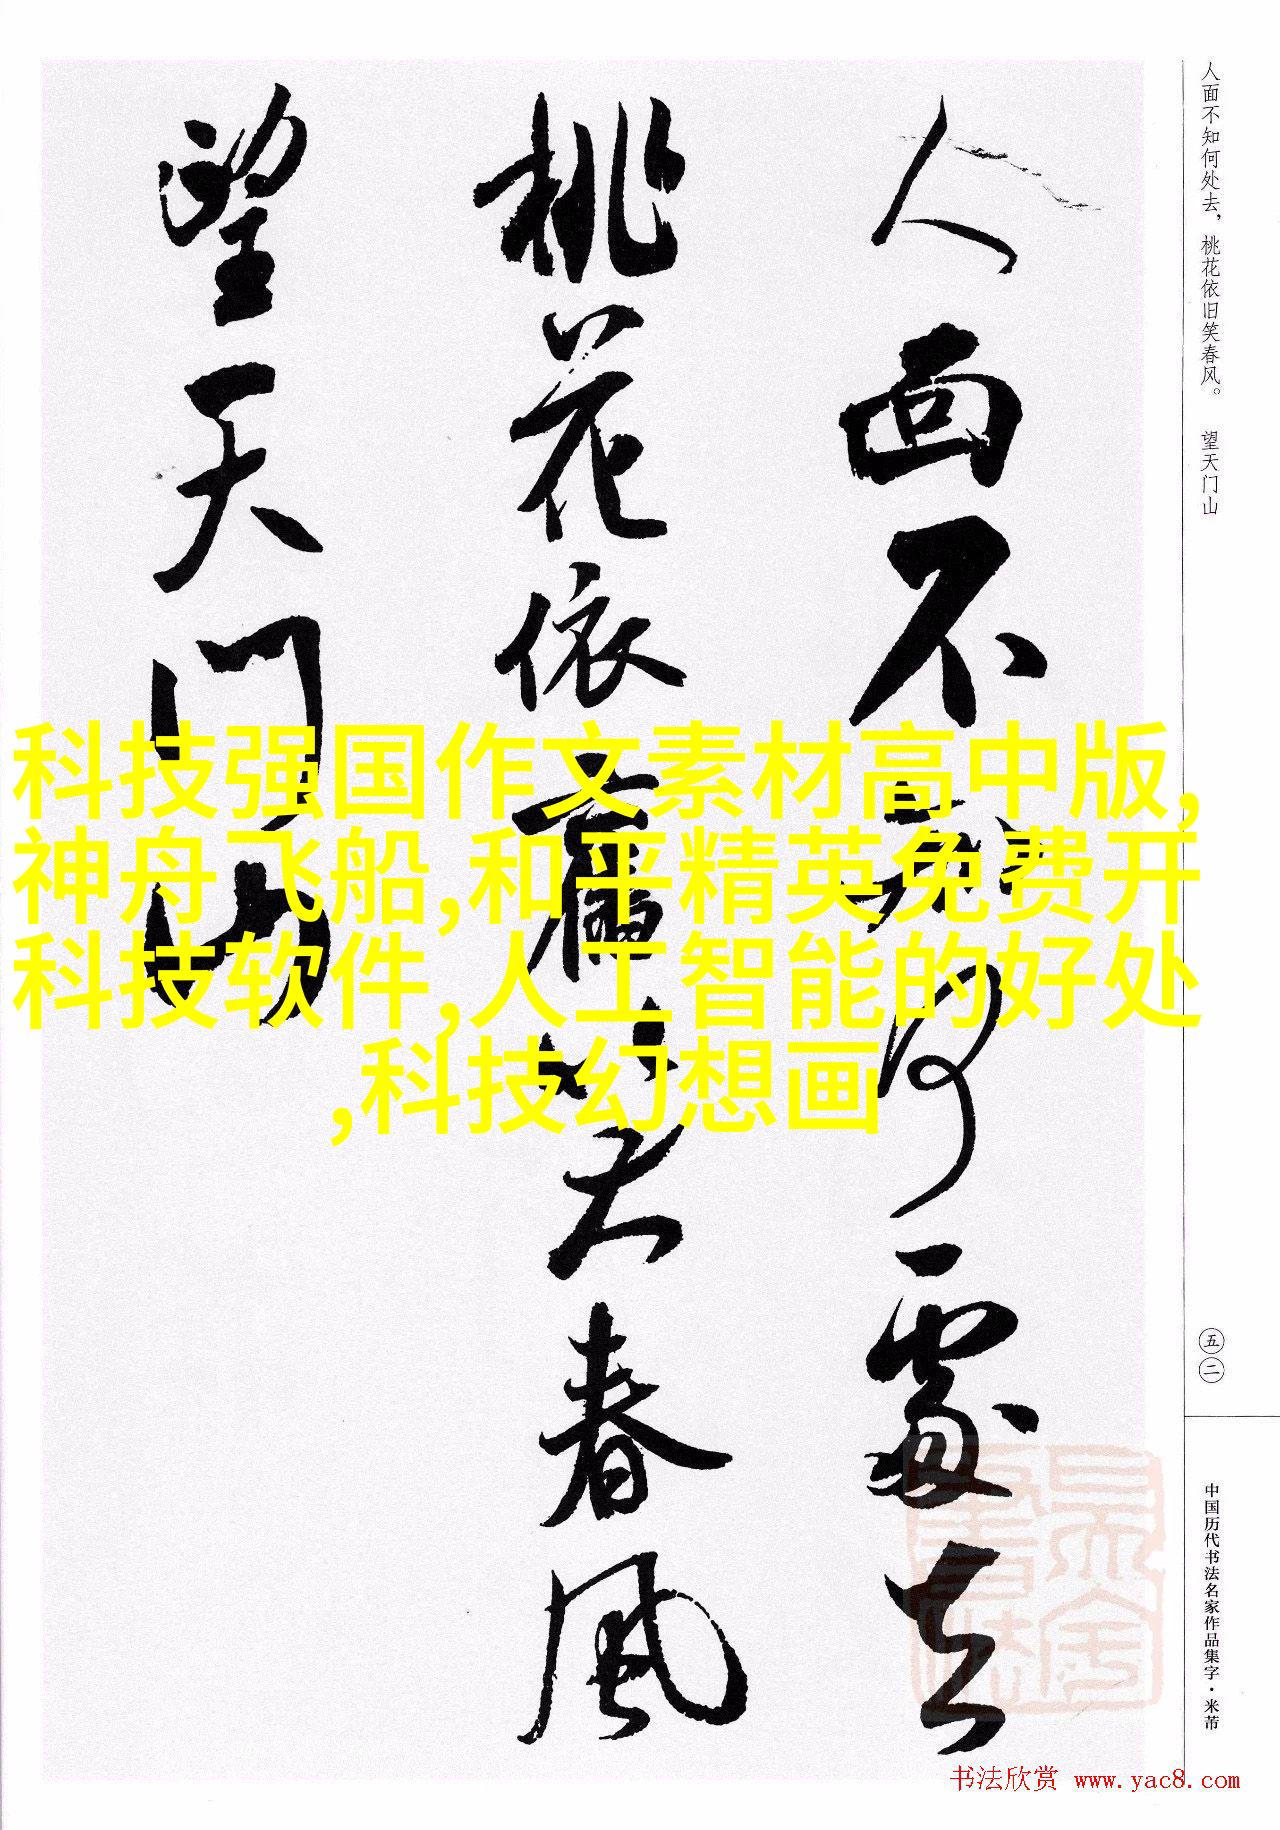 人面不知何处去，桃花依旧笑春风。 望天门山
人面不知何處去
桃花依舊笑春風
望天门山
科技强国作文素材高中版,
神舟飞船,和平精英免费开
科技软件,人工智能的好处
,科技幻想画
五二
中国历代书法名家作品集字·米芾
书法欣赏 www.yac8.com